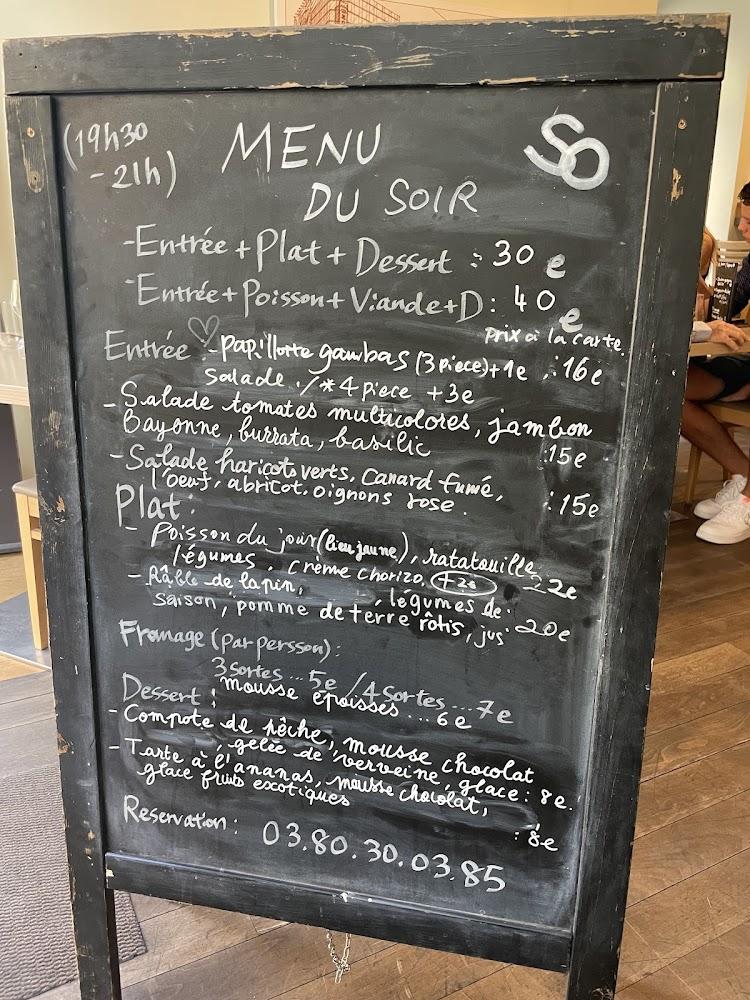 (19h30
- 21h)
MENU
DU SOIR
SO
-Entrée + Plat + Dessert : 30 e
-Entrée + Poisson + Viande + D : 40 e
Prix à la carte.
Entrée : - papillotte gambas (3 piece) + 1e : 16e
Salade. /*4 piece +3e
- Salade tomates multicolores, jambon
Bayonne, burrata, basilic :15e
- Salade haricots verts, canard fumé,
l'oeuf, abricot, oignons rose. : 15e
Plat :
- Poisson du jour (lieu jaune), ratatouille
légumes, crème chorizo, +2e 22e
- Râble de lapin, , légumes de
saison, pomme de terre rôtis, jus 20e
Fromage (par persson) :
3 sortes ... 5e / 4 sortes ... 7e
mousse epoisses ... 6e
Dessert :
- Compote de pêche, mousse chocolat
, gelée de verveine, glace : 8e.
- Tarte à l'ananas, mousse chocolat,
glace fruits exotiques : 8e
Reservation : 03.80.30.03.85